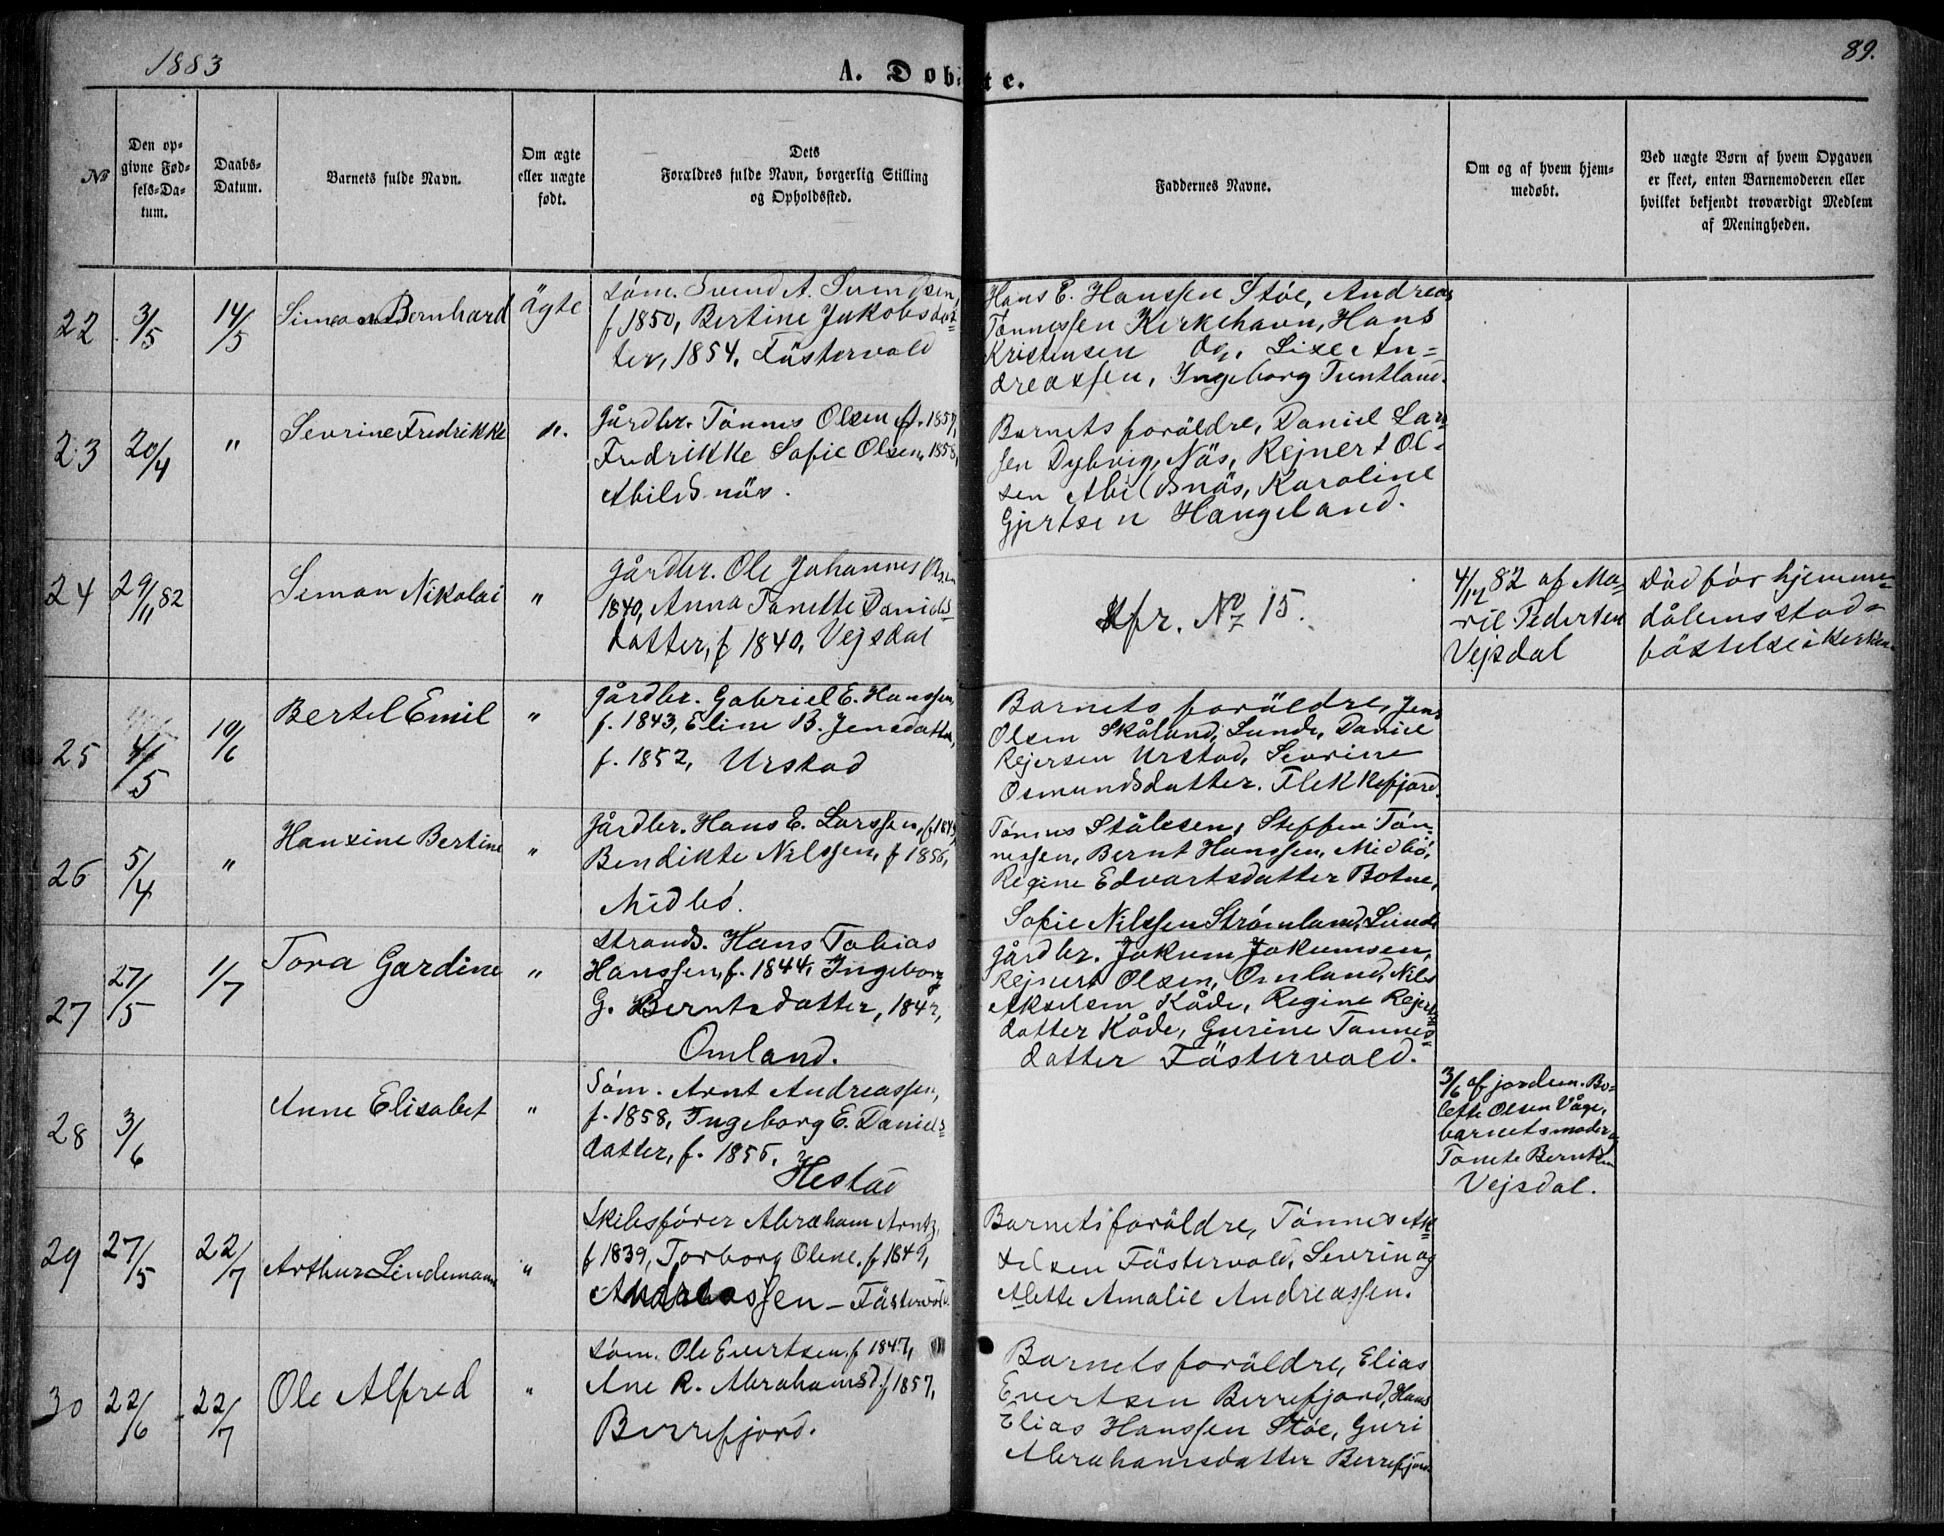 1883
89.
A. Døbte.
No
Den op-
givne Fød-
sels-Da-
tum.
Daabs-
Datum.
Barnets fulde Navn.
Om ægte
eller uægte
født.
Dets
Forældres fulde Navn, borgerlig Stilling
og Opholdssted.
Faddernes Navne.
Om og af hvem hjem-
medøbt.
Ved uægte Børn af hvem Opgaven
er skeet, enten Barnemoderen eller
hvilket bekjendt troværdigt Medlem
af Menigheden.
22
3/5
14/5
Simon Bernhard
ägte
Söm. Svend A. Svendsen,
f 1850, Bertine Jakobsdat-
ter, 1854, Fästervold
Hans E. Hanssen Stöe, Andreas
Tönnessen Kirkehavn, Hans
Kristensen og Lise An=
dreassen, Ingeborg Tuntland.
23
20/4
"
Sevrine Fredrikke
"
Gårdbr. Tönnes Olsen f. 1857,
Fredrikke Sofie Olsen, 1858,
Abilsnäs.
Barnets foräldre, Daniel Lar-
sen Dybvig, Näs, Rejnert Ol-
sen Abilsnäs, Karoline
Gjertsen Haugeland.
24
29/11 82
Simon Nikolai
"
Gårdbr. Ole Johannes Olsen
1840, Anna Tonette Daniels-
datter, f 1840, Vejsdal
Kfr. No 15.
4/12 82 af Ma-
ril Pedersen
Vejsdal
Död för hjemme-
dåbens stad-
fästelse i kirken.
25
4/5
10/6
Bertel Emil
"
Gårdbr. Gabriel E. Hanssen,
f. 1843, Eline B. Jensdatter,
f. 1852, Urstad
Barnets foräldre, Jens
Olsen Skåland, Lunde, Daniel
Rejersen Urstad, Sevrine
Osmundsdatter. Flekkefjord.
26
5/4
"
Hansine Bertine
"
Gårdbr. Hans E. Larssen, f 1849,
Bendikte Nilssen, f 1856,
Midbö.
Tönnes Stålesen, Steffen Tön-
nessen, Bernt Hanssen, Midbö,
Regine Edvartsdatter Botne,
Sofie Nilssen Strömland, Lunde
27
27/5
1/7
Tora Gardine
"
Strands. Hans Tobias
Hanssen, f. 1844, Ingeborg
G. Berntsdatter, 1842,
Omland.
gårdbr. Jokum Jokumsen,
Rejnert Olsen, Omland, Nils
Akselsen Kåde, Regine Rejerts-
datter Kåde, Gurine Tönnes-
datter Fästervold.
28
3/6
Anne Elisabet
"
Söm. Arnt Andreassen,
f. 1858, Ingeborg E. Daniels-
datter, f. 1856,
Hestad
3/6 af jordem. Bo-
lette Olsen Våge,
barnets moder og
Tonete Berntsen
Vejsdal.
29
27/5
22/7
Arthur Lindemann
"
Skibsförer Abraham Arntz,
f 1839, Torborg Olene, f 1849,
Andreassen – Fästervold.
Barnets foräldre, Tönnes Ak-
selsen Fästervold, Severin og
Alette Amalie Andreassen.
30
22/6
22/7
Ole Alfred
"
Söm. Ole Evertsen, f 1847,
Ane R. Abrahamsd. f 1857,
Berrefjord.
Barnets foräldre, Elias
Evertsen Berrefjord, Hans
Elias Hanssen Stöe, Guri
Abrahamsdatter Berrefjord